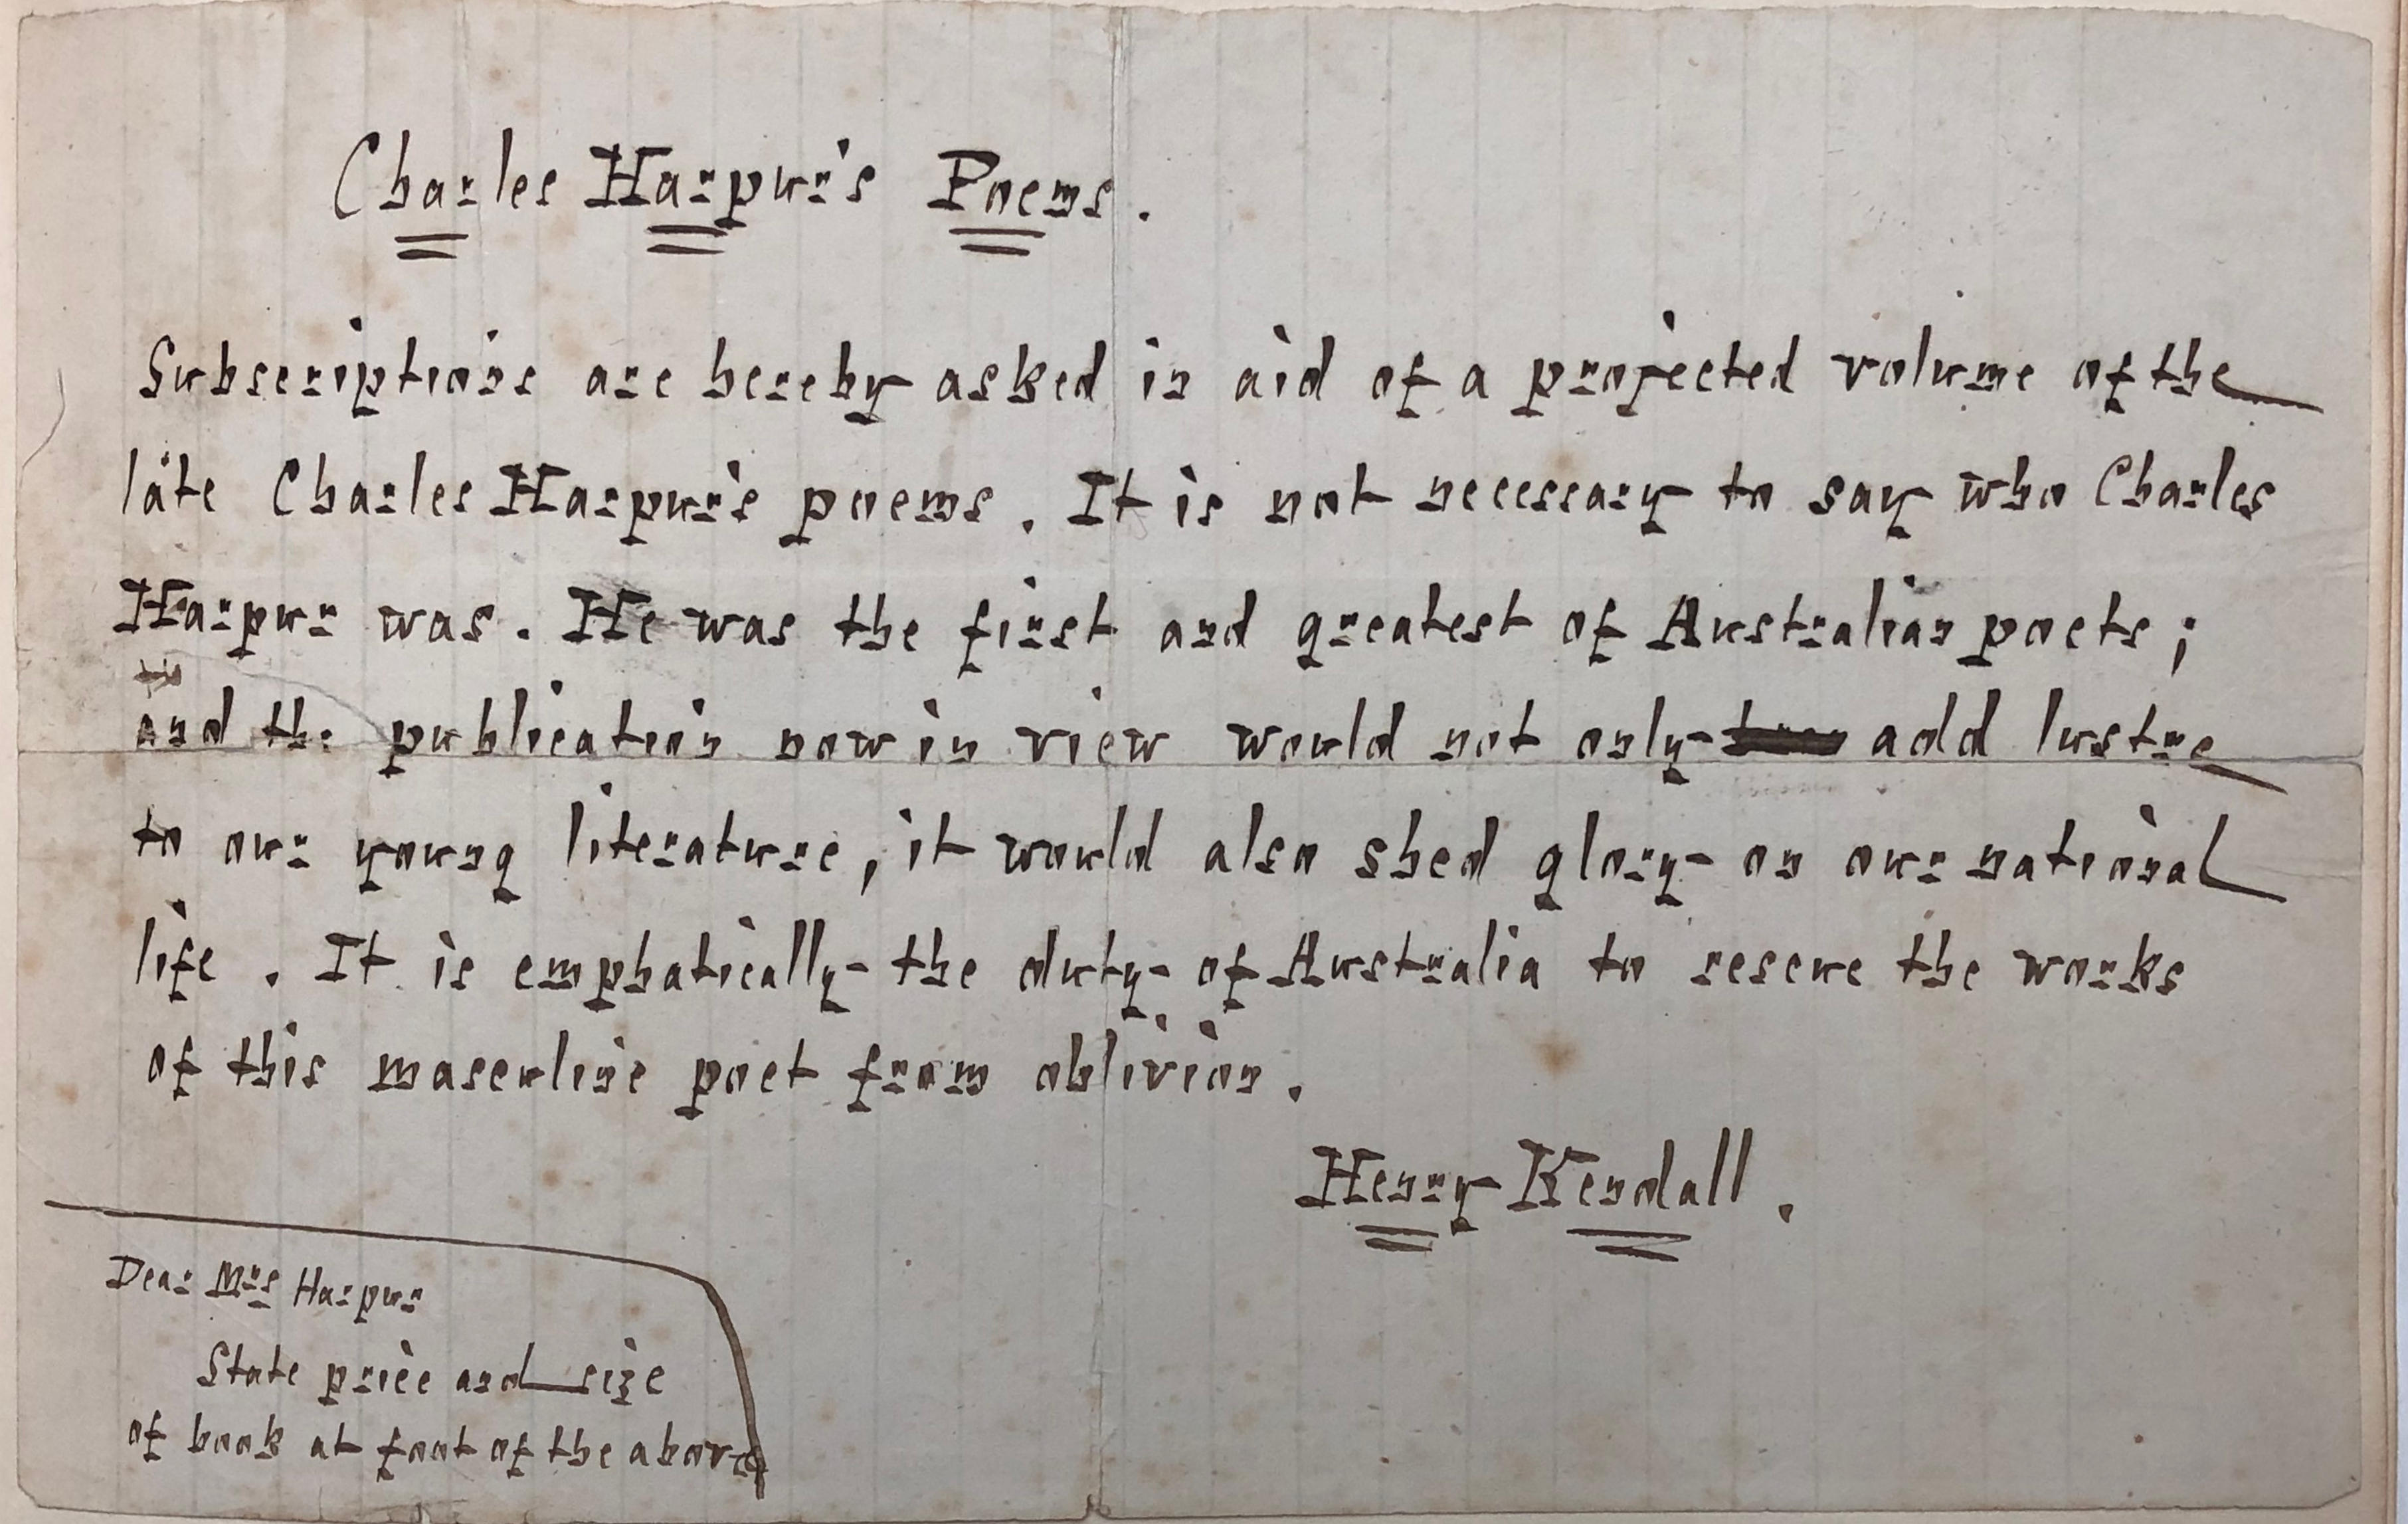 Charles Harpur's Poems.
Subscriptions are hereby asked in aid of a projected volume of the
late Charles Harpur's poems. It is not necessary to say who Charles
Harpur was. He was the first and greatest of Australian poets;
and the publication now in view would not only add lustre
to our young literature, it would also shed glory on our national
life. It is emphatically the duty of Australia to rescue the works
of this masculine poet from oblivion.
Henry Kendall.
Dear Mrs Harpur
State price and size
of book at foot of the above